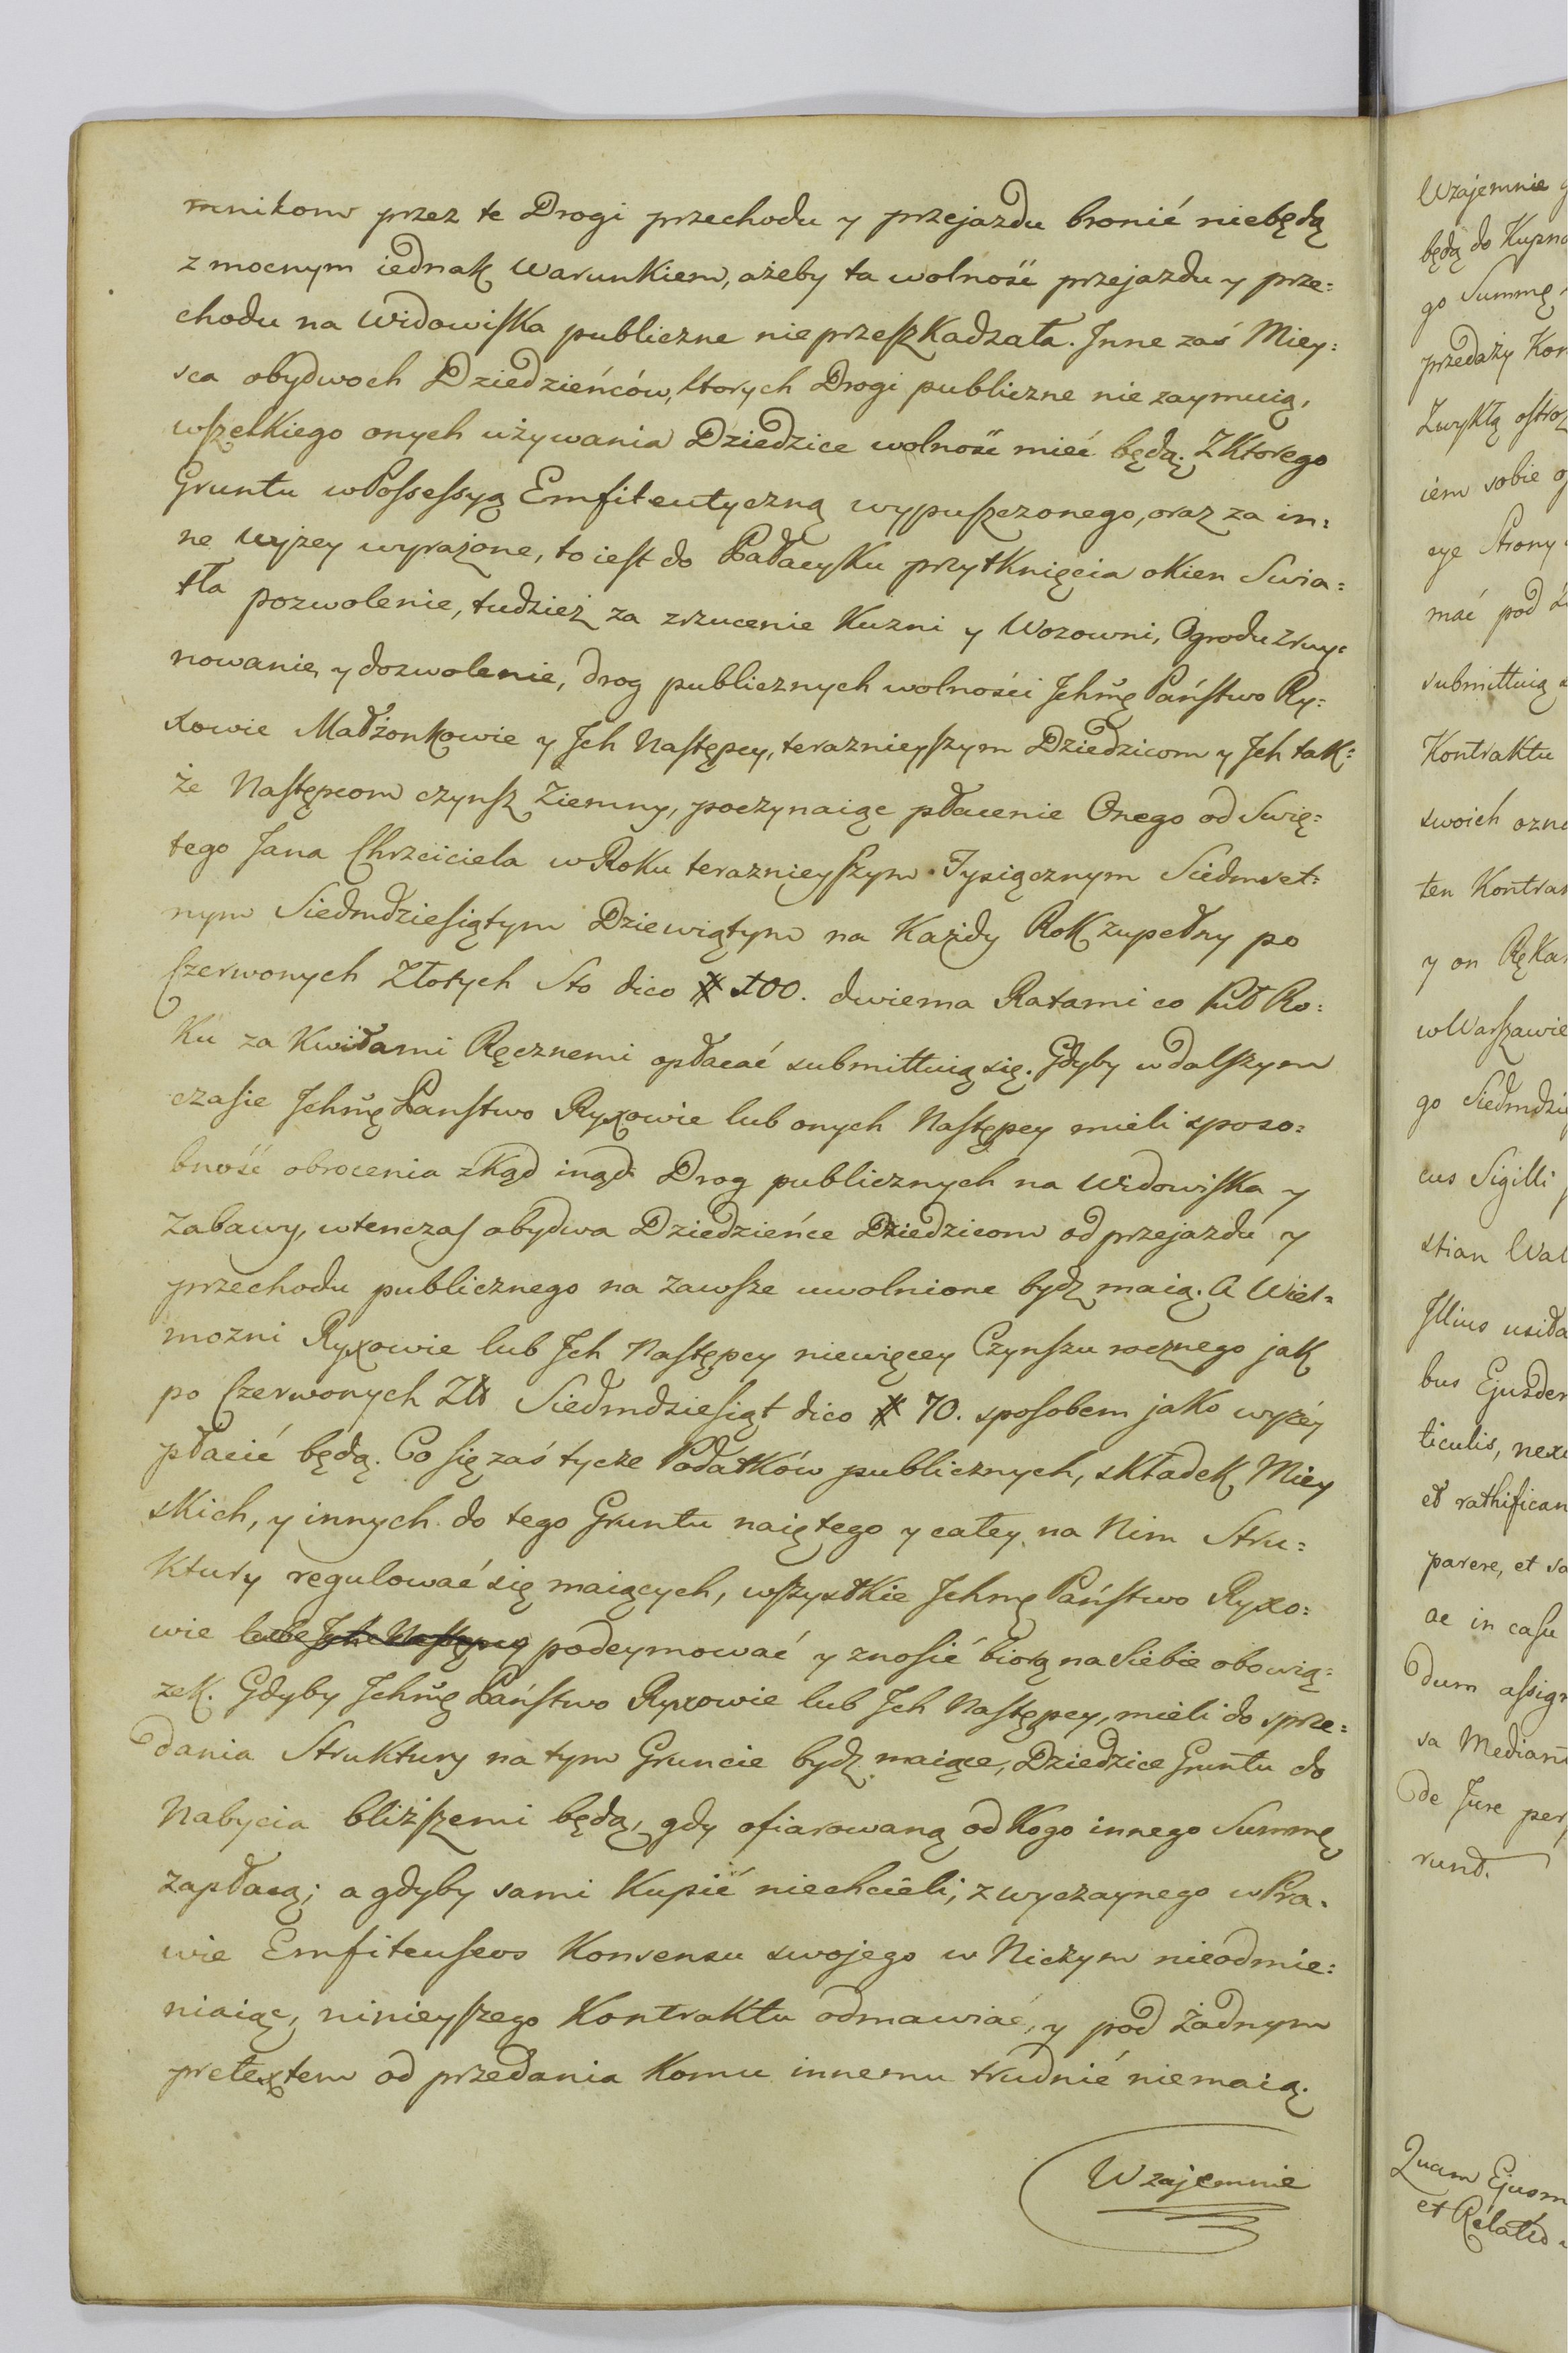 mnikom przez te Drogi przechodu y przejazdu bronić niebędą
z mocnym iednak Warunkiem, ażeby ta wolność przejazdu y prze=
chodu na Widowiska publiczne nieprzeszkadzała. Jnne zaś Miey=
sca obydwoch Dziedzieńców, ktorych Drogi publiczne nie zaymuią,
wszelkiego onych używania Dziedzice wolność mieć będą. Z Ktorego
Gruntu w Possessyą Emfiteutyczną wypuszczonego, oraz za in=
ne wyżey wyrażone, to iest do Pałacyku przytknięcia okien Swia=
tła pozwolenie, tudzież za zrzucenie Kuzni y Wozowni, Ogrodu zruy=
nowanie, y dozwolenie, drog publicznych wolności Jchmę Państwo Ry=
xowie Małżonkowie y Jch Następcy, teraznieyszym Dziedzicom y Jch tak=
że Następcom czynsz Ziemny, poczynaiąc płacenie Onego od Swię=
tego Jana Chrzciciela w Roku teraznieyszym Tysiącznym Siedmset=
nym Siedmdziesiątym Dziewiątym na Każdy Rok zupełny po
Czerwonych Złotych Sto dico # 100. dwiema Ratami co Puł Ro=
Ku za Kwitami Ręcznemi opłacać submittuią się. Gdyby w dalszym
czasie Jchmę Panstwo Ryxowie lub onych Następcy mieli sposo=
bność obrocenia zkąd inąd Drog publicznych na Widowiska y
Zabawy, wtenczas obydwa Dziedzieńce Dziedzicom od przejazdu y
przechodu publicznego na zawsze uwolnione bydz maią. A Wiel=
mozni Ryxowie lub Jch Następcy niewięcey Czynszu rocznego jak
po Czerwonych Zł Siedmdziesiąt dico # 70. sposobem jako wyżey
płacić będą. Co się zaś tycze Podatków publicznych, składek Miey
skich, y innych do tego Gruntu naiętego y całey na Nim Stru=
Ktury regulować się maiących, wszystkie Jchmę Państwo Ryxo=
wie lub Jch Następcy podeymować y znosić biorą na Siebie obowią=
zek. Gdyby Jchmę Państwo Ryxowie lub Jch Następcy, mieli do sprze=
dania Struktury na tym Gruncie bydz maiące, Dziedzice Gruntu do
Nabycia bliższemi będą, gdy ofiarowaną od Kogo innego Summę
zapłacą; a gdyby sami Kupić niechcieli, zwyczaynego w Pra=
wie Emfiteuseos Konsensu swojego w Niczym nieodmie=
niaiąc, ninieyszego Kontraktu odmawiać, y pod żadnym
pretextem od przedania Komu innemu trudnić niemaią.
Wzajemnie
Wzajemnie
będą do Kupna
go Summę
przedaży Kon
Zwykłą ostroż
iem sobie
cye Strony
mać pod
submittuią
Kontraktu
swoich
ten Kontrak
y on Ręka
w Warszawie
go Siedmdzie
cus Sigilli
stian Wal
Jllius
bus Ejusdem
ticulis, nex
et rathifican
parere, et
ac in casu
dum assig
sa
de Jure per
runt.
Quam Ejusm
et